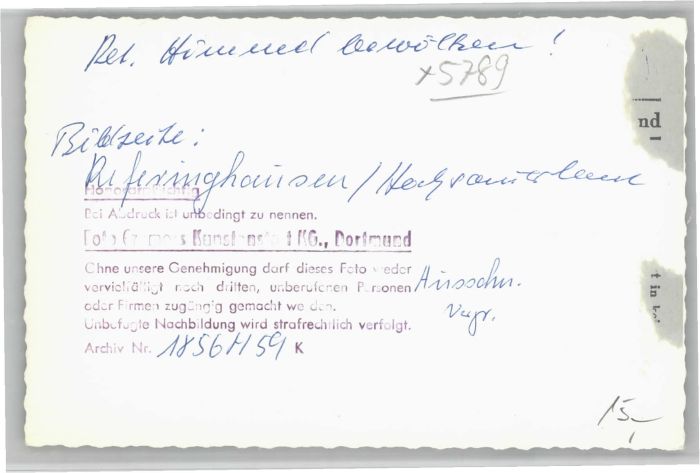 Ret. Himmel bewölken!
x5789
nd
Bildseite:
Referinghausen/Hochsauerland
Honorarpflichtig
Bei Abdruck ist unbedingt zu nennen.
Foto Cramers Kunstanstalt KG., Dortmund
Ohne unsere Genehmigung darf dieses Foto weder
vervielfältigt noch dritten, unberufenen Personen
oder Firmen zugängig gemacht werden.
Unbefugte Nachbildung wird strafrechtlich verfolgt.
Archiv Nr. 1856H59 K
Ausschn.
t in
15,-